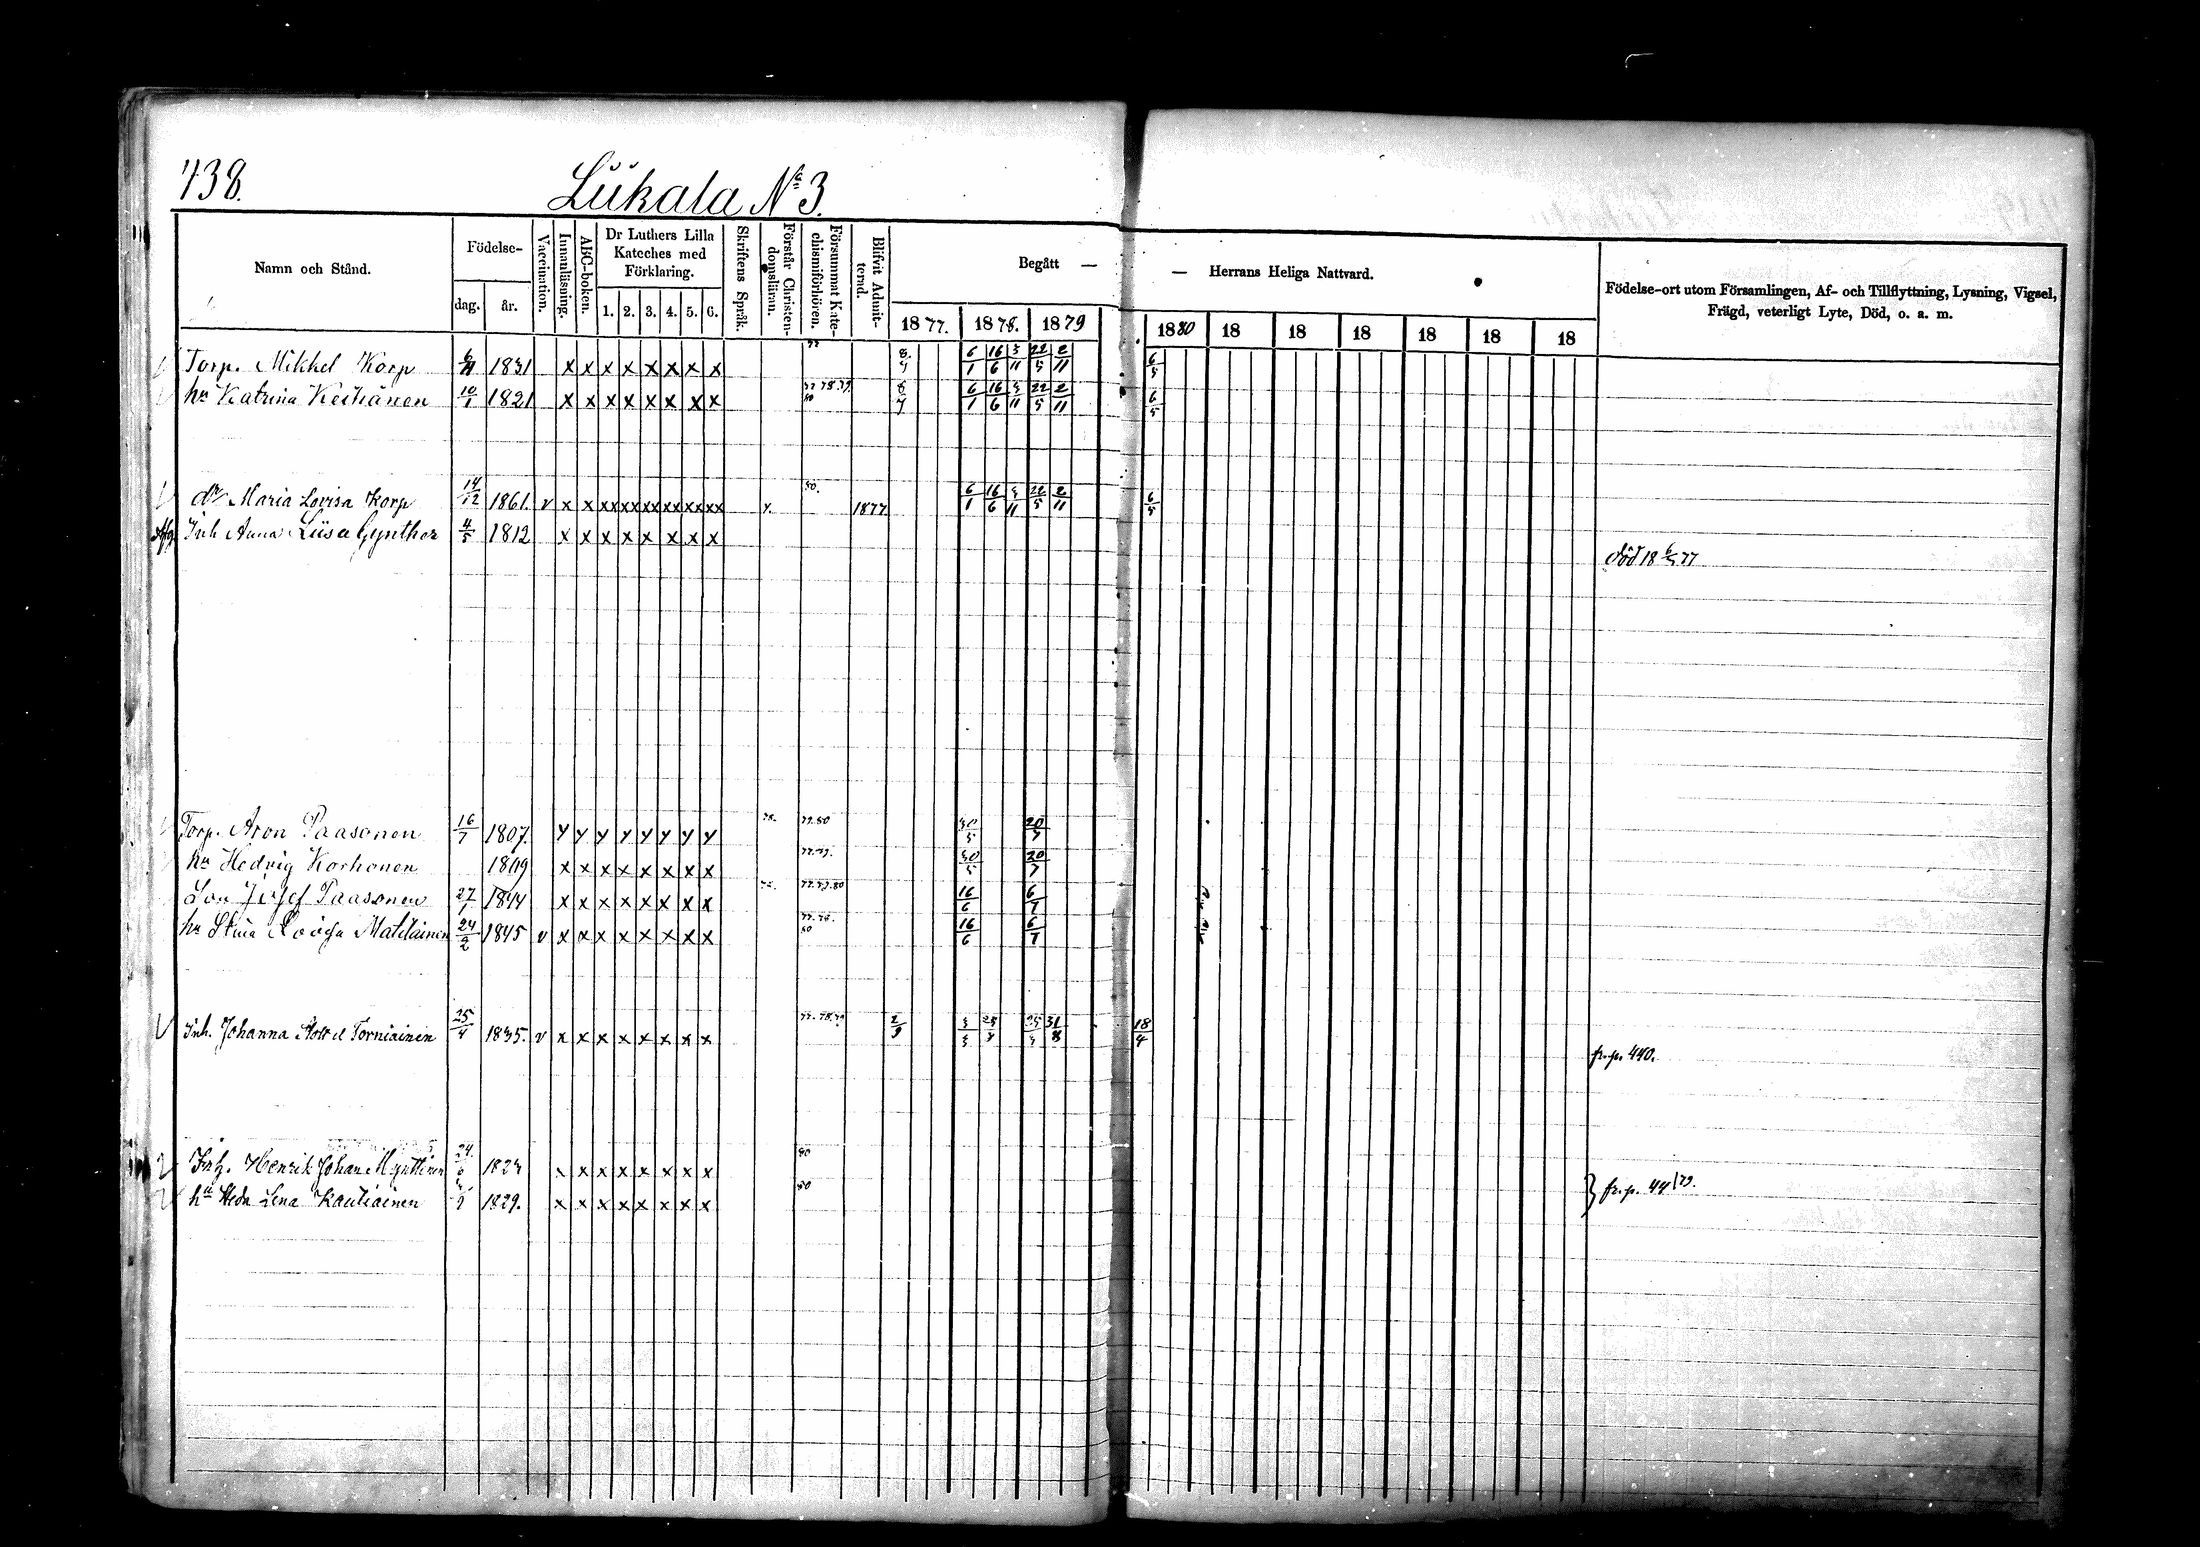 438.
Liikala No 3.
Namn och Stånd.
Födelse-
dag.
år.
Vaccination.
Innanläsning.
ABC-boken.
Dr Luthers Lilla
Kateches med
Förklaring.
1. 2. 3. 4. 5. 6.
Skriftens Språk.
Förstår Christen-
domsläran.
Försummat Kate-
chismiförhören.
Blifvit Admit-
terad.
Begått —
— Herrans Heliga Nattvard.
1877. 1878. 1879 1880 18 18 18 18 18 18
Födelse-ort utom Församlingen, Af- och Tillflyttning, Lysning, Vigsel,
Frägd, veterligt Lyte, Död, o. a. m.
Torp. Mikkel Korp 1831 x x x x x x x x 6/1 16/6 3/11 22/5 2/11 6/5
hu Katrina Keihänen 10/1 1821 x x x x x x x x 77 78 79 80 6/1 16/6 3/11 22/5 2/11 6/5
dr Maria Lovisa Korp 14/12 1861. v x x xx xx xx xx xx xx 80. 1877 6/1 16/6 3/11 22/5 2/11 6/5
Inh Anna Liisa Gynther 4/5 1812 x x x x x x x x död 18 6/5 77
Torp. Aron Paasonen 16/7 1807. y y y y y y y y 78. 77.80 30/5 20/7
hu Hedvig Korhonen 1809 x x x x x x x x 77.79. 30/5 20/7
Son Josef Paasonen 27/1 1844 x x x x x x x x 77.79.80 16/6 6/7
hu Stina Matilainen 24/2 1845 v x x x x x x x x 80 16/6 6/7
Inh. Johanna Torniainen 25/4 1835. v x x x x x x x x 77.78.79 2/9 25/5 31/8 18/4 fr.p. 440.
Inh. Henrik Johan Mynttinen 24. x x x x x x x x 80
hu Hedv Lena Kautiainen 1829. x x x x x x x x 80 } fr.p. 44/79.